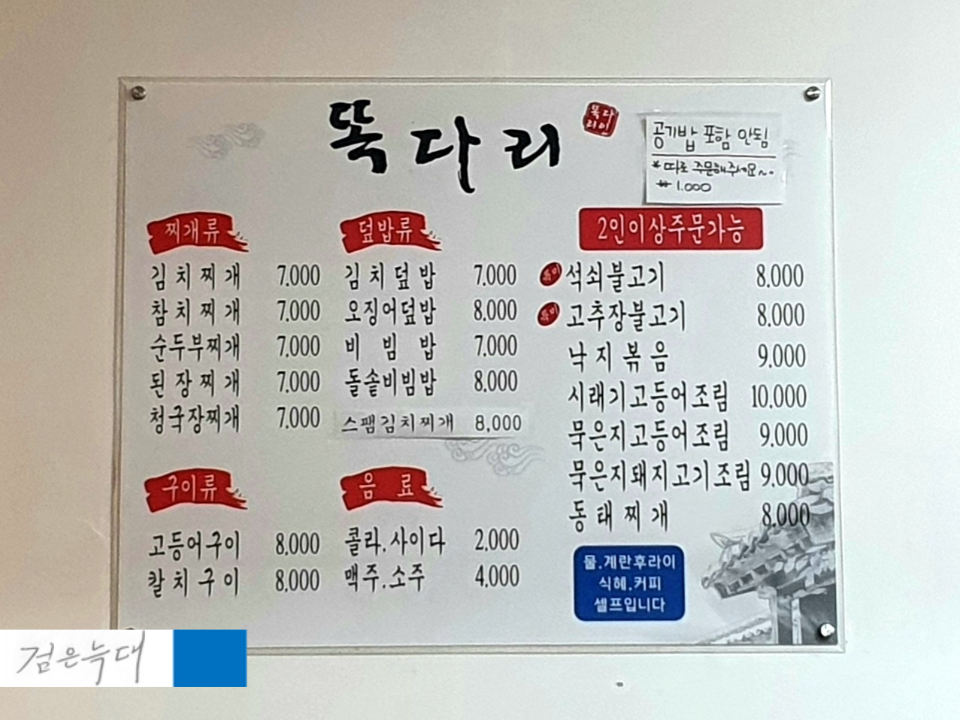 뚝다리
뚝다
리이
공기밥 포함 안됨
* 따로 주문해주세요~.
₩ 1.000
찌개류
김치찌개 7.000
참치찌개 7.000
순두부찌개 7.000
된장찌개 7.000
청국장찌개 7.000
덮밥류
김치덮밥 7.000
오징어덮밥 8.000
비빔밥 7.000
돌솥비빔밥 8.000
스팸김치찌개 8,000
2인이상주문가능
석쇠불고기 8.000
고추장불고기 8.000
낙지볶음 9.000
시래기고등어조림 10.000
묵은지고등어조림 9.000
묵은지돼지고기조림 9.000
동태찌개 8.000
구이류
고등어구이 8.000
칼치구이 8.000
음료
콜라.사이다 2.000
맥주.소주 4.000
물.계란후라이
식혜.커피
셀프입니다
검은늑대